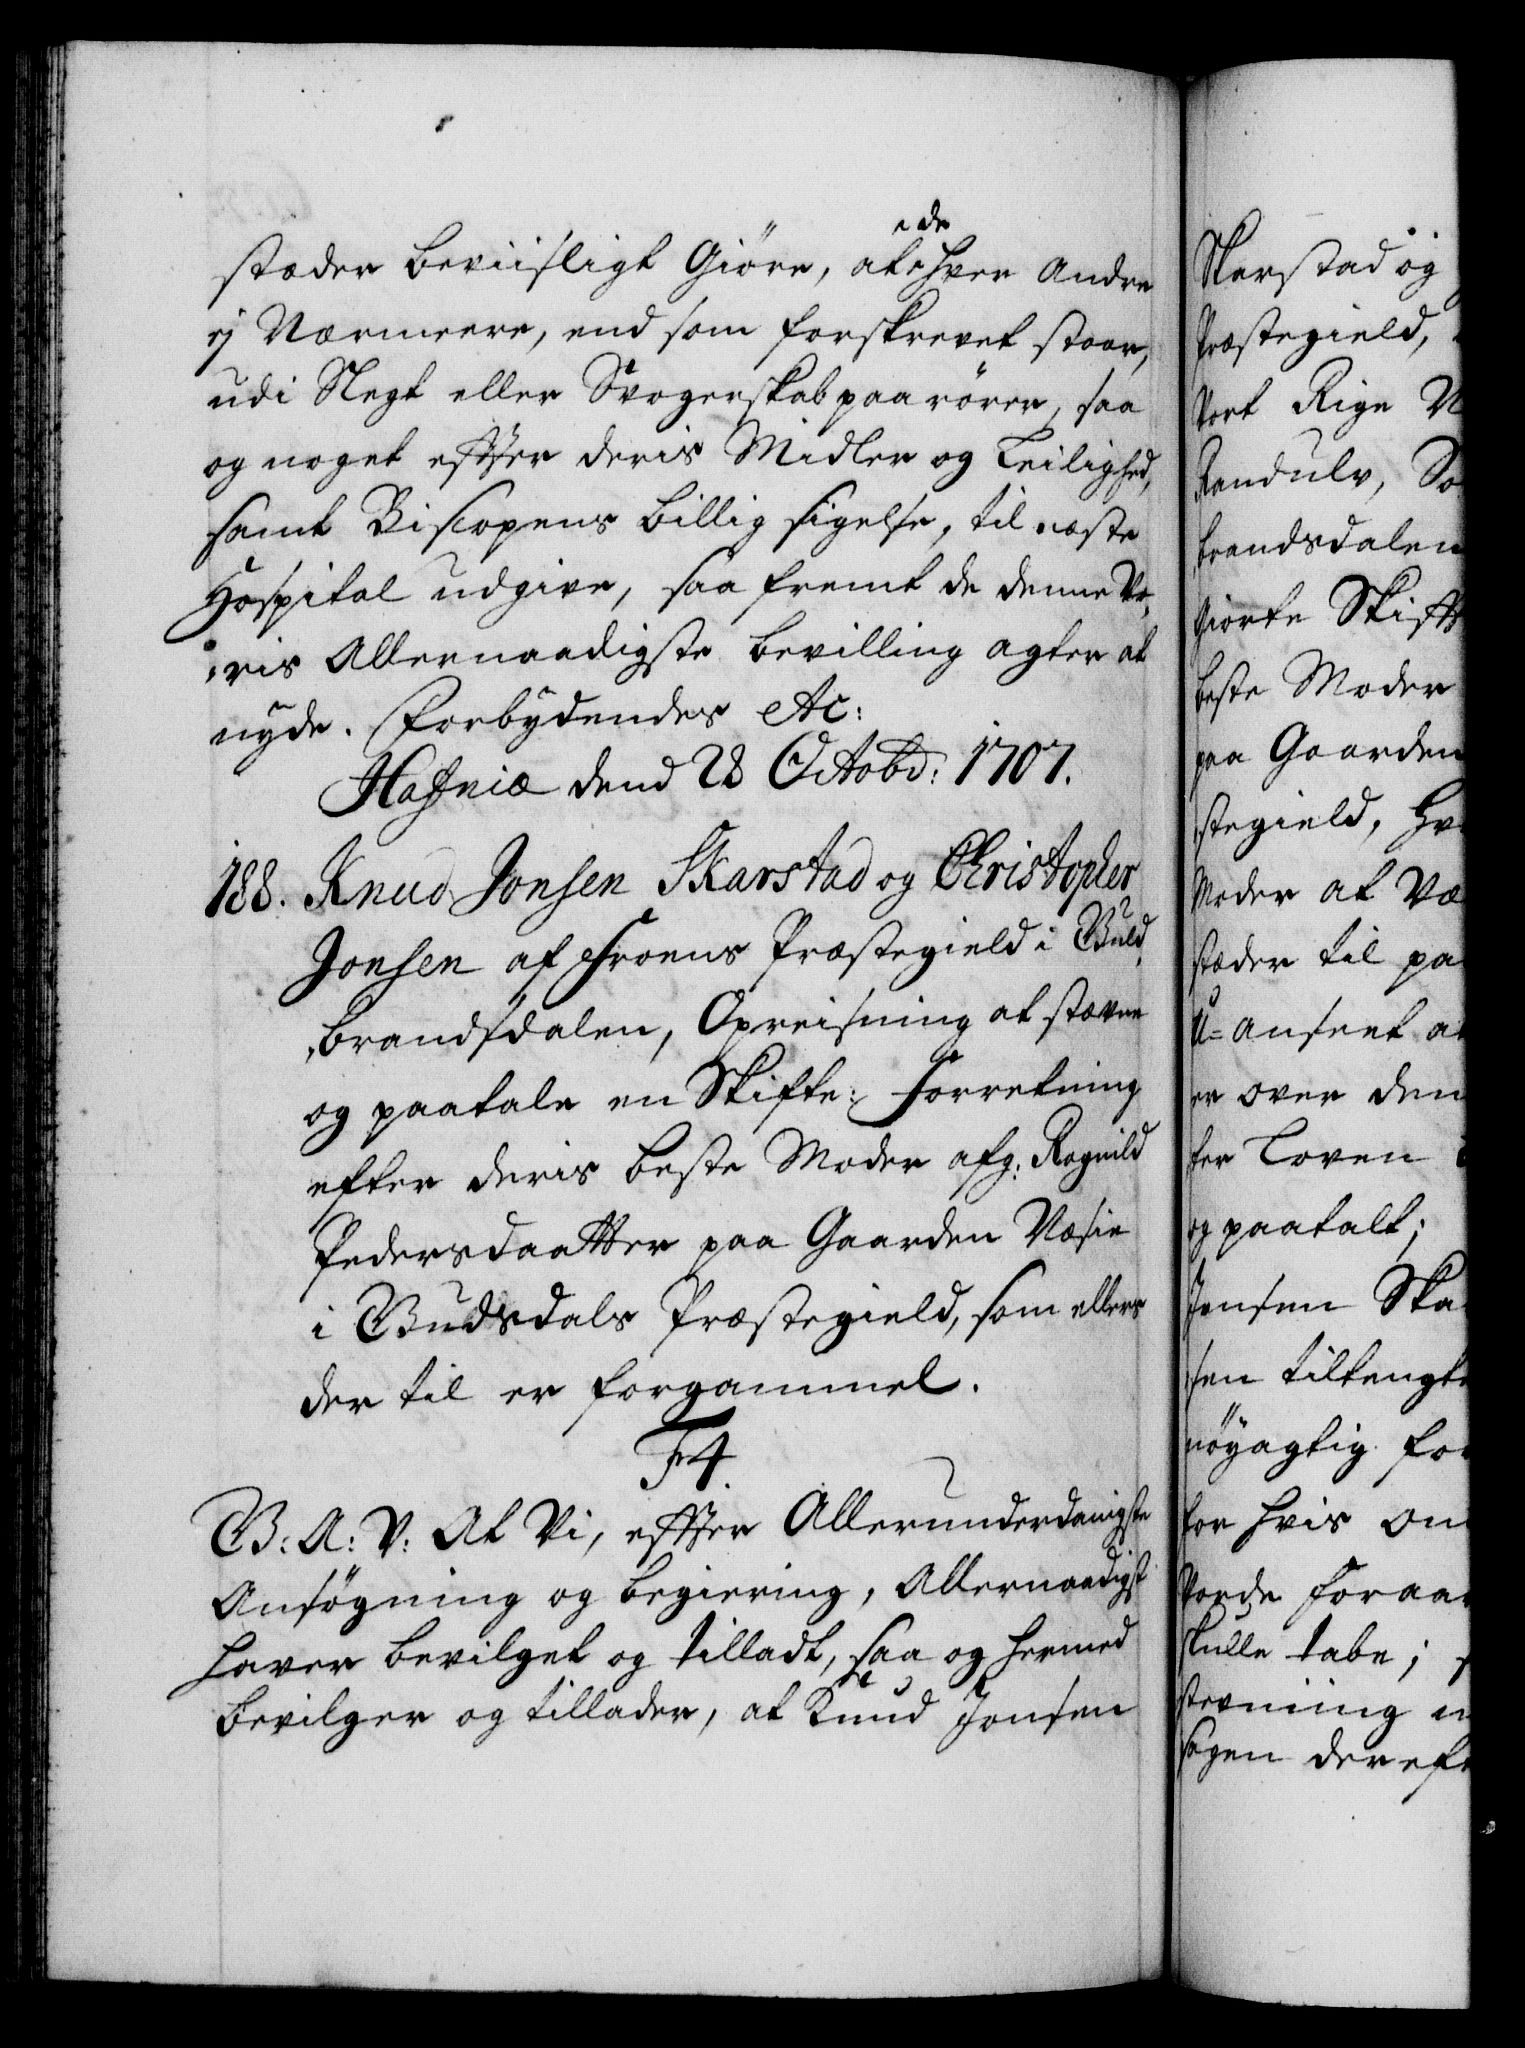 stæder beviisligt Giøre, at de hver Andre
ej Nærmeere, end som forskrevet staar,
udi Slegt eller Svogerskab paarører, saa
og noget effter deris Midler og Leilighed,
samt Biscopens billig sigelse, til næste
Hospital udgive, saa fremt de denne Vo,
,ris Allernaadigste bevilling agter at
nyde. Forbydendes etc:
Hafniæ dend 28 Octobr: 1707.
188. Knud Jonsen Skarstad og Christopher
Jonsen af Froens Præstegield i Guld,
,brandsdalen, Opreisning at stævne
og paatale en Skifte: Forretning
efter deris beste Moder afg. Ragnild
Pedersdaatter paa Gaarden Næsie
i Gudsdals Præstegield, som ellers
der til er forgammel.
F4.
G: A: V: At Vi, effter Allerunderdanigste
Ansøgning og begiering, Allernaadigst
haver bevilget og tilladt, saa og hermed
bevilger og tillader, at Knud Jonsen
Skarstad og
Præstegield,
Vort Rige N
Randulv, So
brandsdalen
Giorte Skifft
beste Moder
paa Gaarden
stegield, hv
Moder at Væ
stæder til pa
U=anseet at
er over den
ter Loven
og paatalt;
Jonsen Ska
sen tiltengte
nøyagtig for
for hvis om
Vorde foraar
skulle tabe;
stevning
sagen dereft